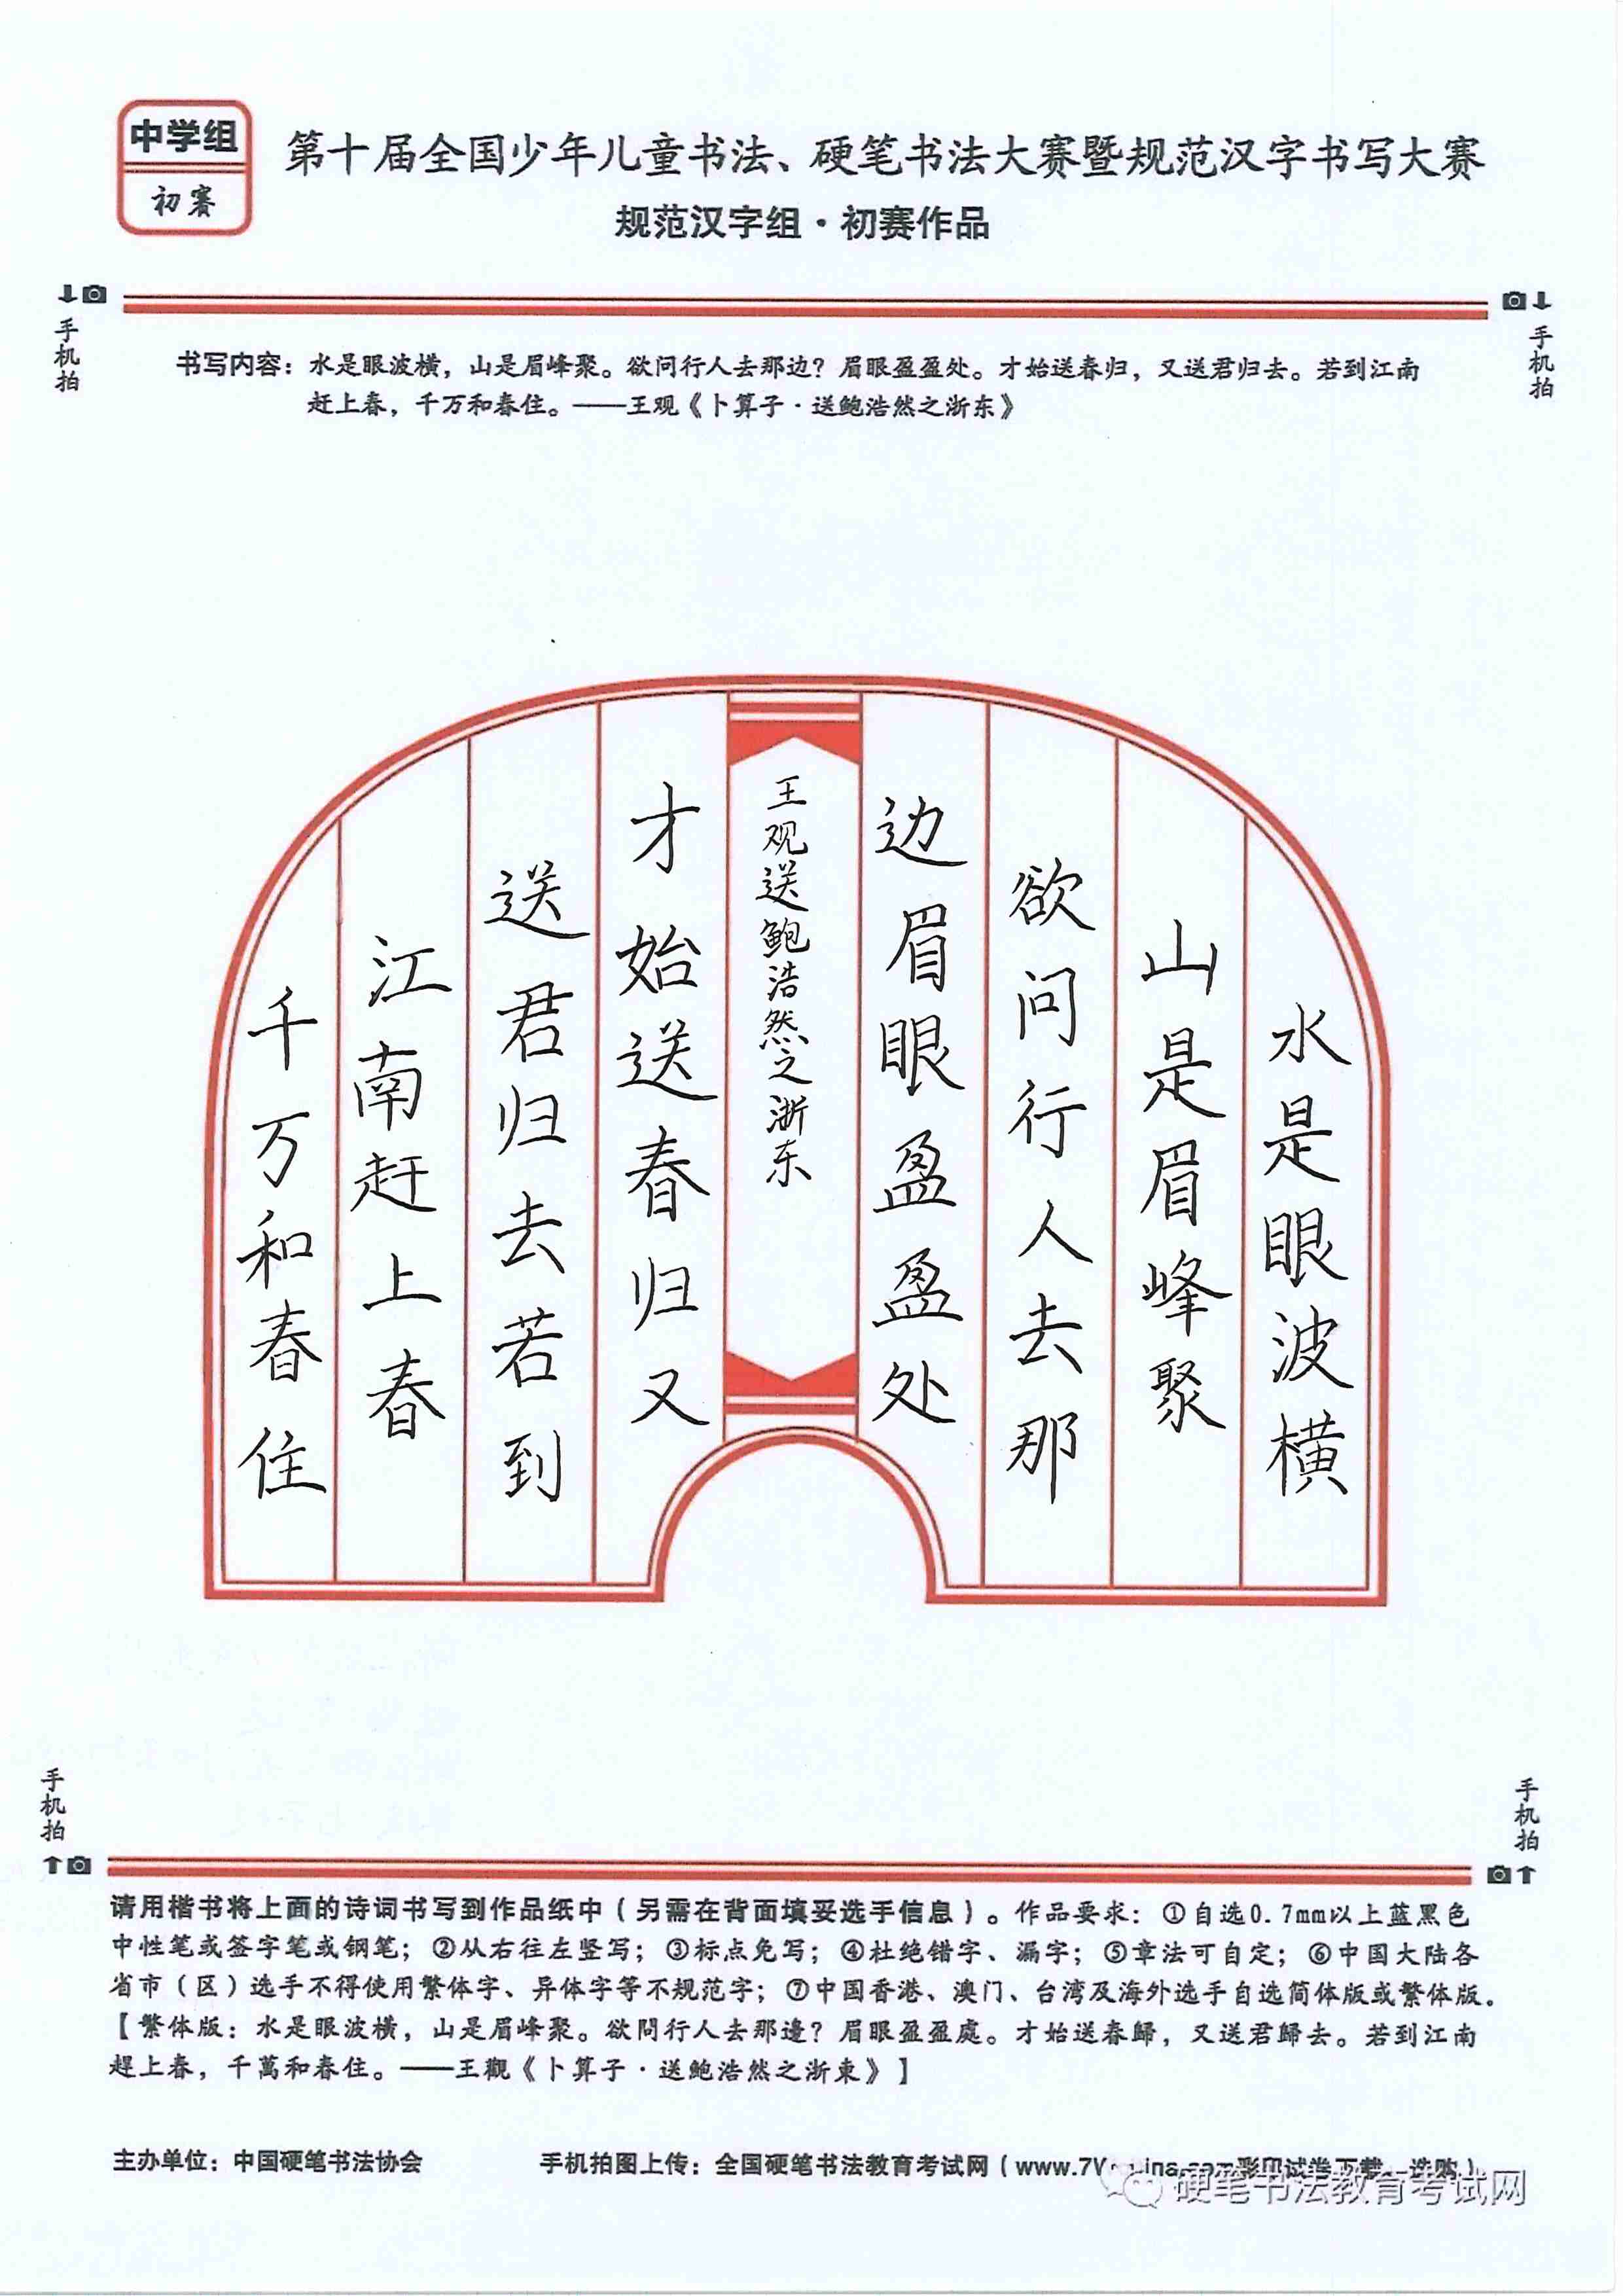 中学组
初赛
第十届全国少年儿童书法、硬笔书法大赛暨规范汉字书写大赛
规范汉字组·初赛作品
手机拍
手机拍
书写内容：水是眼波横，山是眉峰聚。欲问行人去那边？眉眼盈盈处。才始送春归，又送君归去。若到江南
赶上春，千万和春住。——王观《卜算子·送鲍浩然之浙东》
水是眼波横
山是眉峰聚
欲问行人去那
边眉眼盈盈处
王观送鲍浩然之浙东
才始送春归又
送君归去若到
江南赶上春
千万和春住
手机拍
手机拍
请用楷书将上面的诗词书写到作品纸中（另需在背面填妥选手信息）。作品要求：①自选0.7mm以上蓝黑色
中性笔或签字笔或钢笔；②从右往左竖写；③标点免写；④杜绝错字、漏字；⑤章法可自定；⑥中国大陆各
省市（区）选手不得使用繁体字、异体字等不规范字；⑦中国香港、澳门、台湾及海外选手自选简体版或繁体版。
【繁体版：水是眼波橫，山是眉峰聚。欲問行人去那邊？眉眼盈盈處。才始送春歸，又送君歸去。若到江南
趕上春，千萬和春住。——王觀《卜算子·送鮑浩然之浙東》】
主办单位：中国硬笔书法协会
手机拍图上传：全国硬笔书法教育考试网（www.7V 彩印试卷下载、选购）
硬笔书法教育考试网